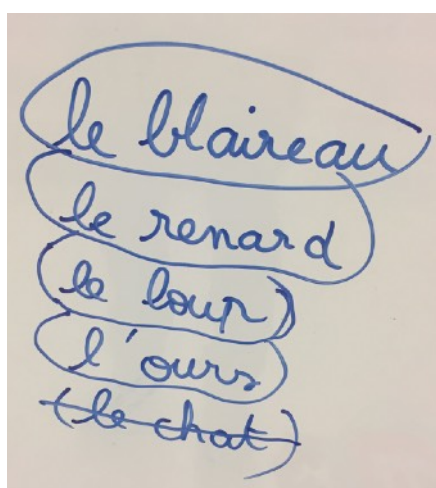 le blaireau
le renard
le loup)
l'ours
(le chat)